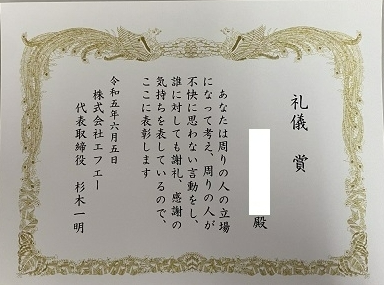 礼儀賞
殿
あなたは周りの人の立場
になって考え、周りの人が
不快に思わない言動をし、
誰に対しても謝礼、感謝の
気持ちを表しているので、
ここに表彰します
令和五年六月五日
株式会社エフエー
代表取締役 杉木一明